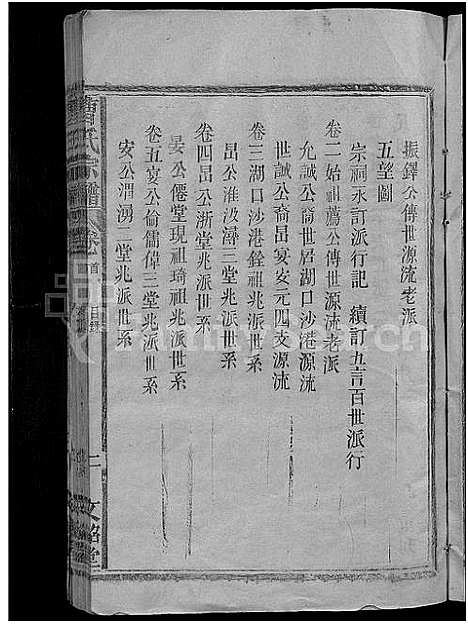 振鐸公傳世源流老派
五望圖
宗祠永訂派行記　續訂五言百世派行
卷二始祖薦公傳世源流老派
允誠公裔世居湖口沙港源流
世誠公裔昌宴安元四支源流
卷三湖口沙港銓祖兆派世系
昌公淮汲濬三堂兆派世系
卷四昌公浙堂兆派世系
晏公僊堂現祖琦祖兆派世系
卷五宴公倫儒偉三堂兆派世系
安公渭湧二堂兆派世系
曹氏宗譜　卷首　目錄　二　文昭堂